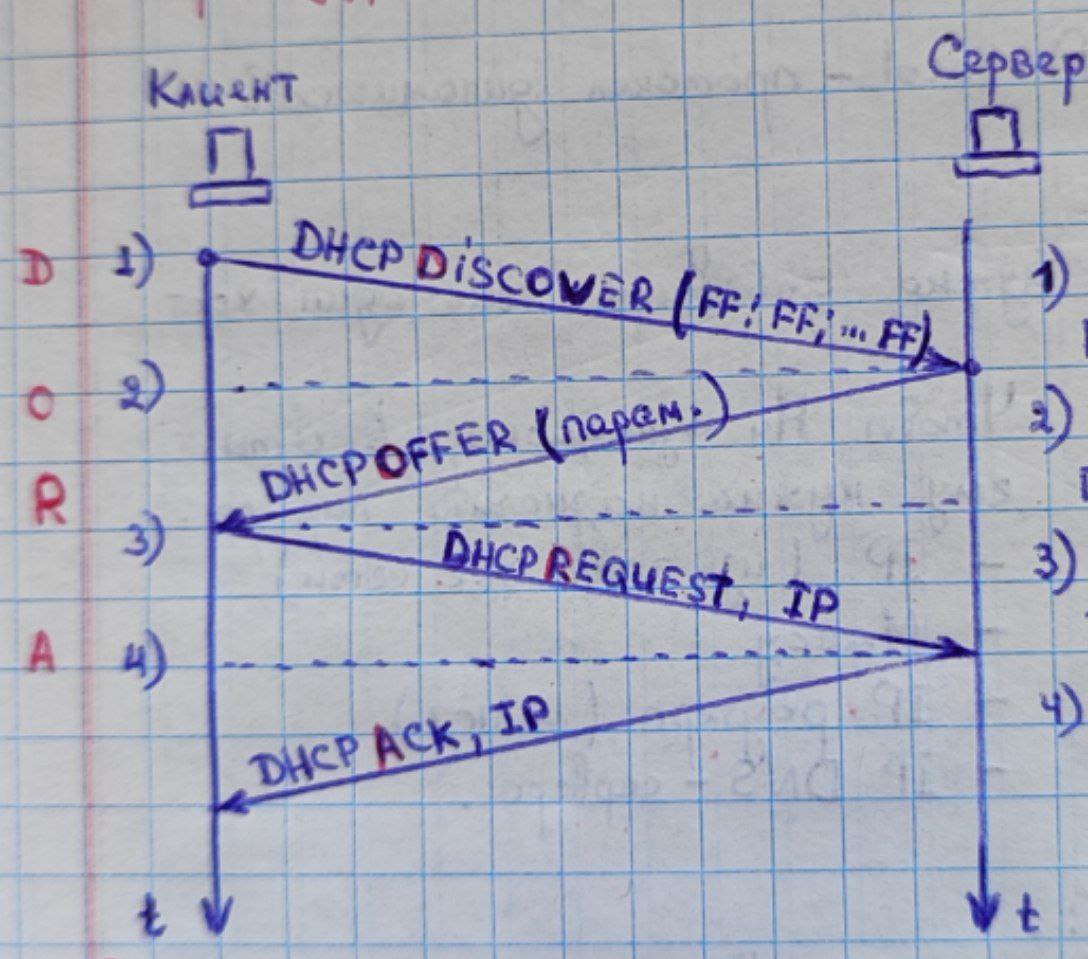 Клиент
Сервер
D 1) DHCP DISCOVER (FF: FF: ... FF) 1)
O 2) DHCP OFFER (парам.) 2)
R 3) DHCP REQUEST, IP 3)
A 4) DHCP ACK, IP 4)
t t